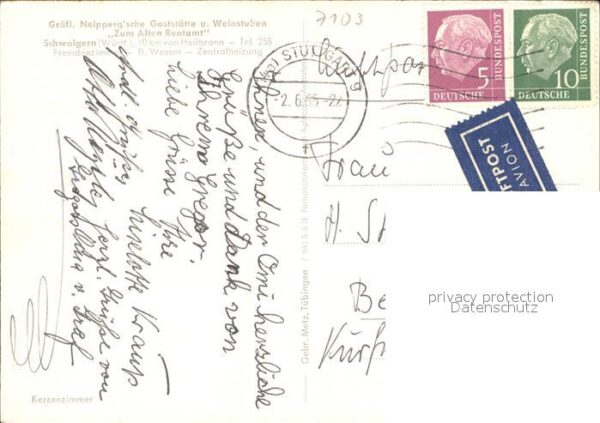 Gräfl. Neipperg'sche Gaststätte u. Weinstuben
"Zum Alten Rentamt"
Schwaigern (Württ.), 10 km von Heilbronn — Tel. 258
Fremdenzimmer — fl. Wasser — Zentralheizung
7103
Ihnen und der Omi herzliche
Grüße und Dank von
Ihrem Gregor.
Liebe Grüsse
Ihre
Liselotte Kraus
herzl. Grüße von
Kerzenzimmer
Gebr. Metz, Tübingen
STUTTGART 9
-2.6.55-2
Luftpost
5
DEUTSCHE
BUNDESPOST
10
DEUTSCHE
BUNDESPOST
LUFTPOST
AVION
Frau
H. St
Be
Kurf
privacy protection
Datenschutz